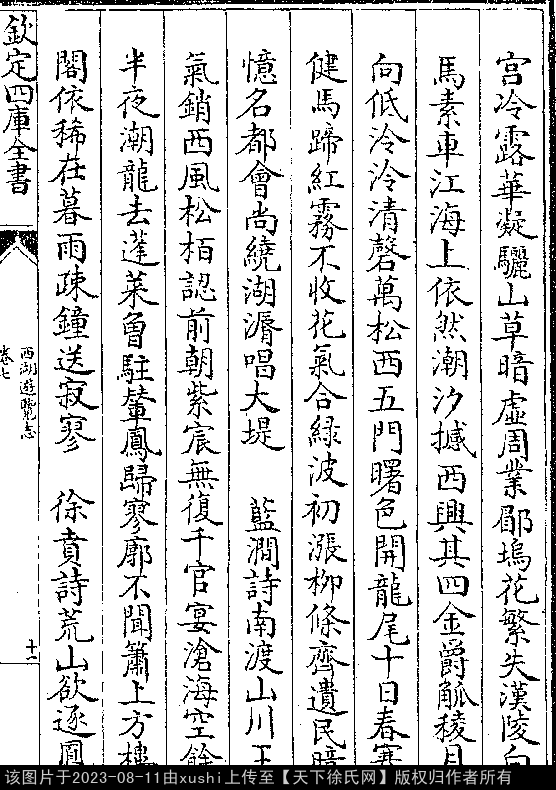 宫冷露華凝驪山草暗虚周業郿塢花繁失漢陵白
馬素車江海上依然潮汐撼西興其四金爵觚稜月
向低泠泠清磬萬松西五門曙色開龍尾十日春寒
健馬蹄紅霧不收花氣合緑波初漲柳條齊遺民暗
憶名都會尚繞湖濆唱大堤 藍澗詩南渡山川王
氣銷西風松栢認前朝紫宸無復千官宴滄海空餘
半夜潮龍去蓬萊曾駐輦鳳歸寥廓不聞簫上方樓
閣依稀在暮雨疎鐘送寂寥 徐賁詩荒山欲逐鳳
欽定四庫全書
西湖遊覽志
卷七
十一
该图片于2023-08-11由xushi上传至【天下徐氏网】版权归作者所有